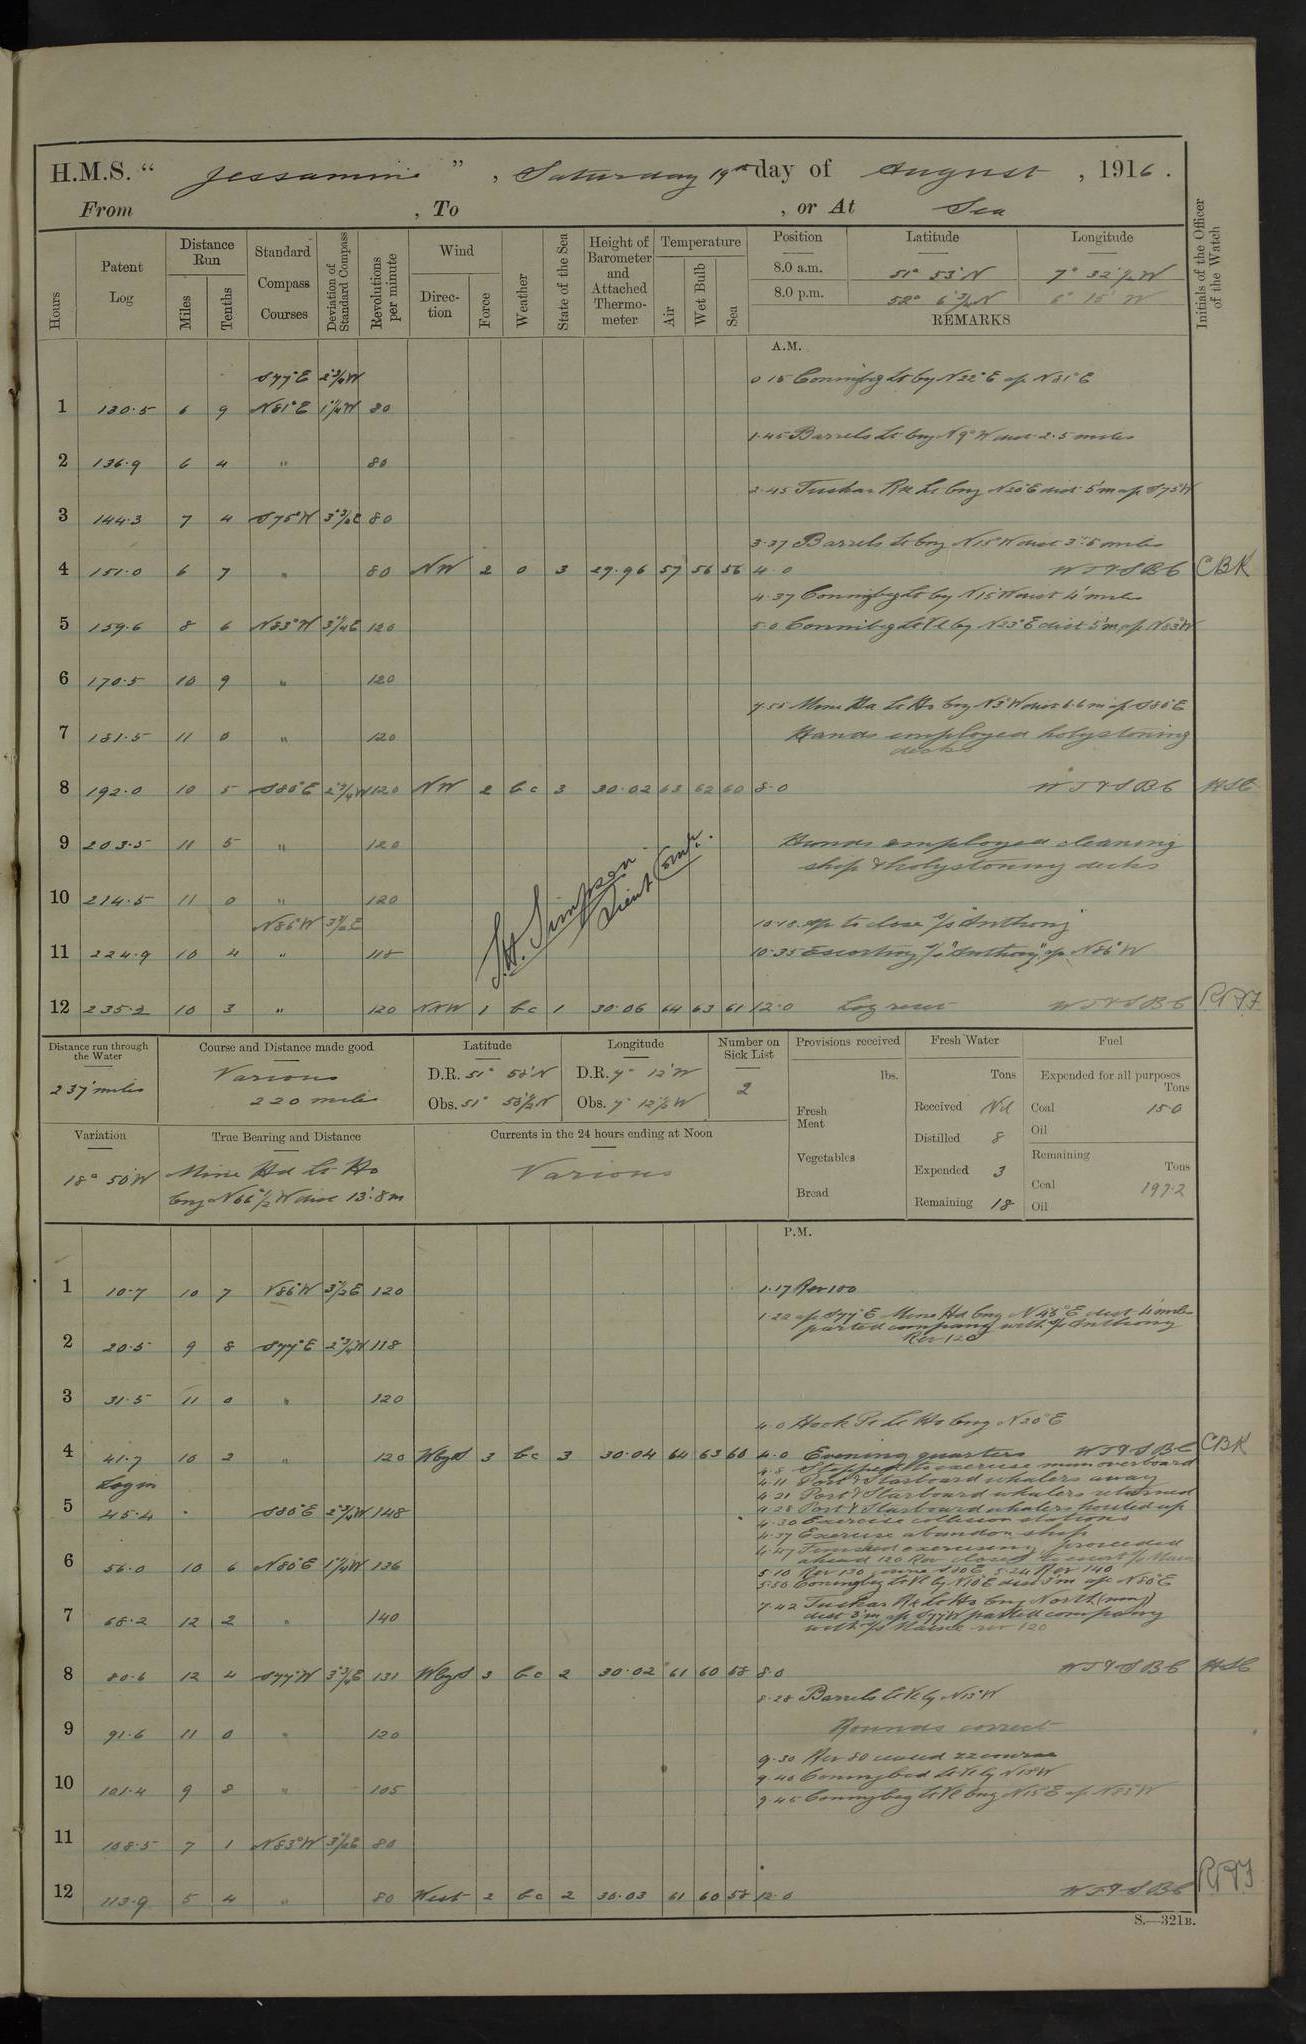 H.M.S. " Jessamine ", Saturday 19th day of August, 1916.
From , To , or At Sea
Hours
Patent Log
Distance Run
Miles
Tenths
Standard Compass Courses
Deviation of Standard Compass
Revolutions per minute
Wind
Direction
Force
Weather
State of the Sea
Height of Barometer and Attached Thermometer
Temperature
Air
Wet Bulb
Sea
Position Latitude Longitude
8.0 a.m. 51° 53' N 7° 32 1/2 W
8.0 p.m. 52° 6 3/4 N 6° 15' W
REMARKS
Initials of the Officer of the Watch
A.M.
S77°E 2 3/4 W 0 15 Conningbeg Lt by N22°E a/c N81°E
1 130.5 6 9 N81°E 1 1/4 W 80
1.45 Barrels Lt brg N9°W dist 2.5 miles
2 136.9 6 4 " 80
2.45 Tuskar Rk Lt brg N20°E dist 5'm a/c S75°W
3 144.3 7 4 S75°W 3 3/4 E 80
3.37 Barrels Lt brg N15°W dist 3.5 miles
4 151.0 6 7 " 80 NW 2 0 3 29.96 57 56 56 4.0 WT&SBC CBK
4.37 Conningbeg Lt by N15°W dist 4' miles
5 159.6 8 6 N83°W 3 1/4 E 120 5.0 Connibeg Lt Vl by N23°E dist 5'm a/c N83°W
6 170.5 10 9 " 120
7.55 Mine Hd Lt Ho brg N3°W dist 6.6 m a/c S80°E
7 181.5 11 0 " 120 Hands employed holystoning
decks
8 192.0 10 5 S80°E 2 3/4 W 120 NW 2 bc 3 30.02 63 62 60 8.0 WT&SBC HSC
9 203.5 11 5 " 120 Hands employed cleaning
ship & holystoning decks
10 214.5 11 0 " 120
N86°W 3 1/2 E 10.18 a/c to close s/s "Anthony"
11 224.9 10 4 " 118 10.35 Escorting s/s "Anthony" a/c N86°W
S.H. Simpson
Lieut Comdr.
12 235.2 10 3 " 120 NNW 1 bc 1 30.06 64 63 61 12.0 Log reset WT&SBC
Distance run through the Water
237' miles
Course and Distance made good
Various
220 miles
Latitude
D.R. 51° 58' N
Obs. 51° 58 1/2 N
Longitude
D.R. 7° 12' W
Obs. 7° 12 1/2 W
Number on Sick List
2
Provisions received
lbs.
Fresh Meat
Vegetables
Bread
Fresh Water
Tons
Received Nil
Distilled 8
Expended 3
Remaining 18
Fuel
Expended for all purposes
Tons
Coal 15.0
Oil
Remaining
Tons
Coal 197.2
Oil
Variation
18° 50' W
True Bearing and Distance
Mine Hd Lt Ho
brg N66 1/2 W dist 13'.8m
Currents in the 24 hours ending at Noon
Various
P.M.
1 10.7 10 7 N86°W 3 1/2 E 120 1.17 Rev 100
1.22 a/c S77°E Mine Hd brg N48°E dist 4' miles
parted company with s/s Anthony
Rev 120
2 20.5 9 8 S77°E 2 3/4 W 118
3 31.5 11 0 " 120
4.0 Hook Pt Lt Ho brg N20°E
4 41.7 10 2 " 120 WbyS 3 bc 3 30.04 64 63 60 4.0 Evening quarters WT&SBC CBK
4.8 Stopped to exercise man overboard
Log in 4.11 Port & Starboard whalers away
4.21 Port & Starboard whalers returned
5 45.4 . S80°E 2 3/4 W 148 4.28 Port & Starboard whalers hoisted up
4.30 Exercise collision stations
4.37 Exercise abandon ship
4.47 Finished exercising proceeded
ahead 120 Rev closed to escort s/s
6 56.0 10 6 N80°E 1 1/4 W 136 5.10 Rev 130 course S80°E 5.24 Rev 140
5.50 Coningbeg Lt Vl by N10°E dist 3'm a/c N80°E
7.42 Tuskar Rk Lt Ho brg North (mag)
7 68.2 12 2 " 140 dist 3'm a/c S77°W parted company
with s/s rev 120
8 80.6 12 4 S77°W 3 3/4 E 131 WbyS 3 bc 2 30.02 61 60 58 8.0 WT&SBC HSC
8.28 Barrels Lt Vl by N13°W
9 91.6 11 0 " 120 Rounds correct
9.30 Rev 80 ceased zz course
9.40 Conningbeg Lt Vl by N15°W
10 101.4 9 8 " 105 9.45 Conningbeg Lt Vl brg N15°E a/c N83°W
11 108.5 7 1 N83°W 3 1/2 E 80
12 113.9 5 4 " 80 West 2 bc 2 30.03 61 60 58 12.0 WT&SBC
S.—321B.